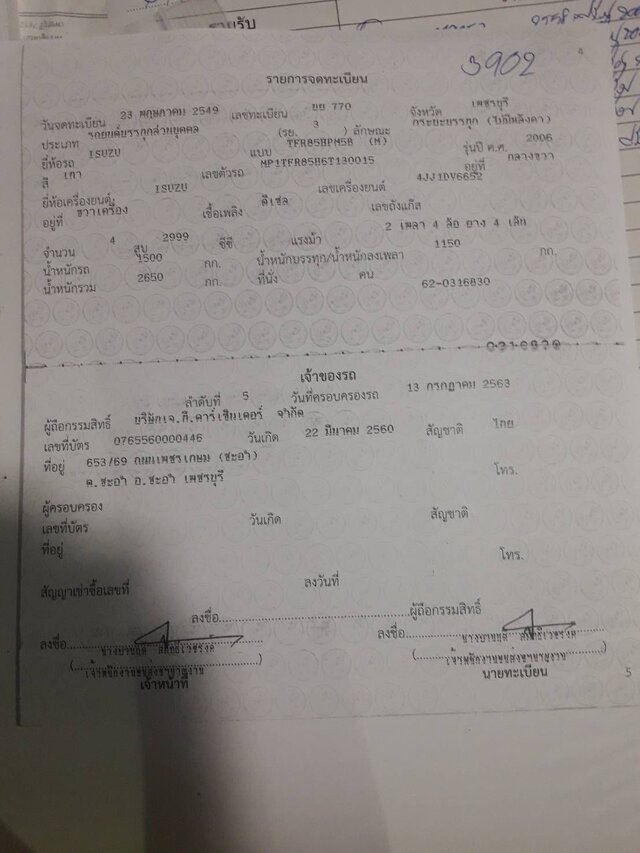 รายรับ
3902
4
รายการจดทะเบียน
วันจดทะเบียน 23 พฤษภาคม 2549 เลขทะเบียน บย 770 จังหวัด เพชรบุรี
ประเภท รถยนต์บรรทุกส่วนบุคคล (รย. 3 ) ลักษณะ กระบะบรรทุก (ไม่มีหลังคา)
ยี่ห้อรถ ISUZU แบบ TFR85HPM5B (M) รุ่นปี ค.ศ. 2006
สี เทา เลขตัวรถ MP1TFR85H6T130015 อยู่ที่ กลางขวา
ยี่ห้อเครื่องยนต์ ISUZU เลขเครื่องยนต์ 4JJ1DV6652
อยู่ที่ ขวาเครื่อง เชื้อเพลิง ดีเซล เลขถังแก๊ส
จำนวน 4 สูบ 2999 ซีซี แรงม้า 2 เพลา 4 ล้อ ยาง 4 เส้น
น้ำหนักรถ 1500 กก. น้ำหนักบรรทุก/น้ำหนักลงเพลา 1150 กก.
น้ำหนักรวม 2650 กก. ที่นั่ง คน 62-0316830
เจ้าของรถ
ลำดับที่ 5 วันที่ครอบครองรถ 13 กรกฎาคม 2563
ผู้ถือกรรมสิทธิ์ บริษัทเจ.พี.คาร์เซ็นเตอร์ จำกัด
เลขที่บัตร 0765560000446 วันเกิด 22 มีนาคม 2560 สัญชาติ ไทย
ที่อยู่ 653/69 ถนนเพชรเกษม (ชะอำ) โทร.
ต.ชะอำ อ.ชะอำ เพชรบุรี
ผู้ครอบครอง
เลขที่บัตร วันเกิด สัญชาติ
ที่อยู่ โทร.
สัญญาเช่าซื้อเลขที่ ลงวันที่
ลงชื่อ ผู้ถือกรรมสิทธิ์
ลงชื่อ ลงชื่อ
เจ้าพนักงานขนส่งชำนาญงาน เจ้าพนักงานขนส่งชำนาญงาน
เจ้าหน้าที่ นายทะเบียน
5